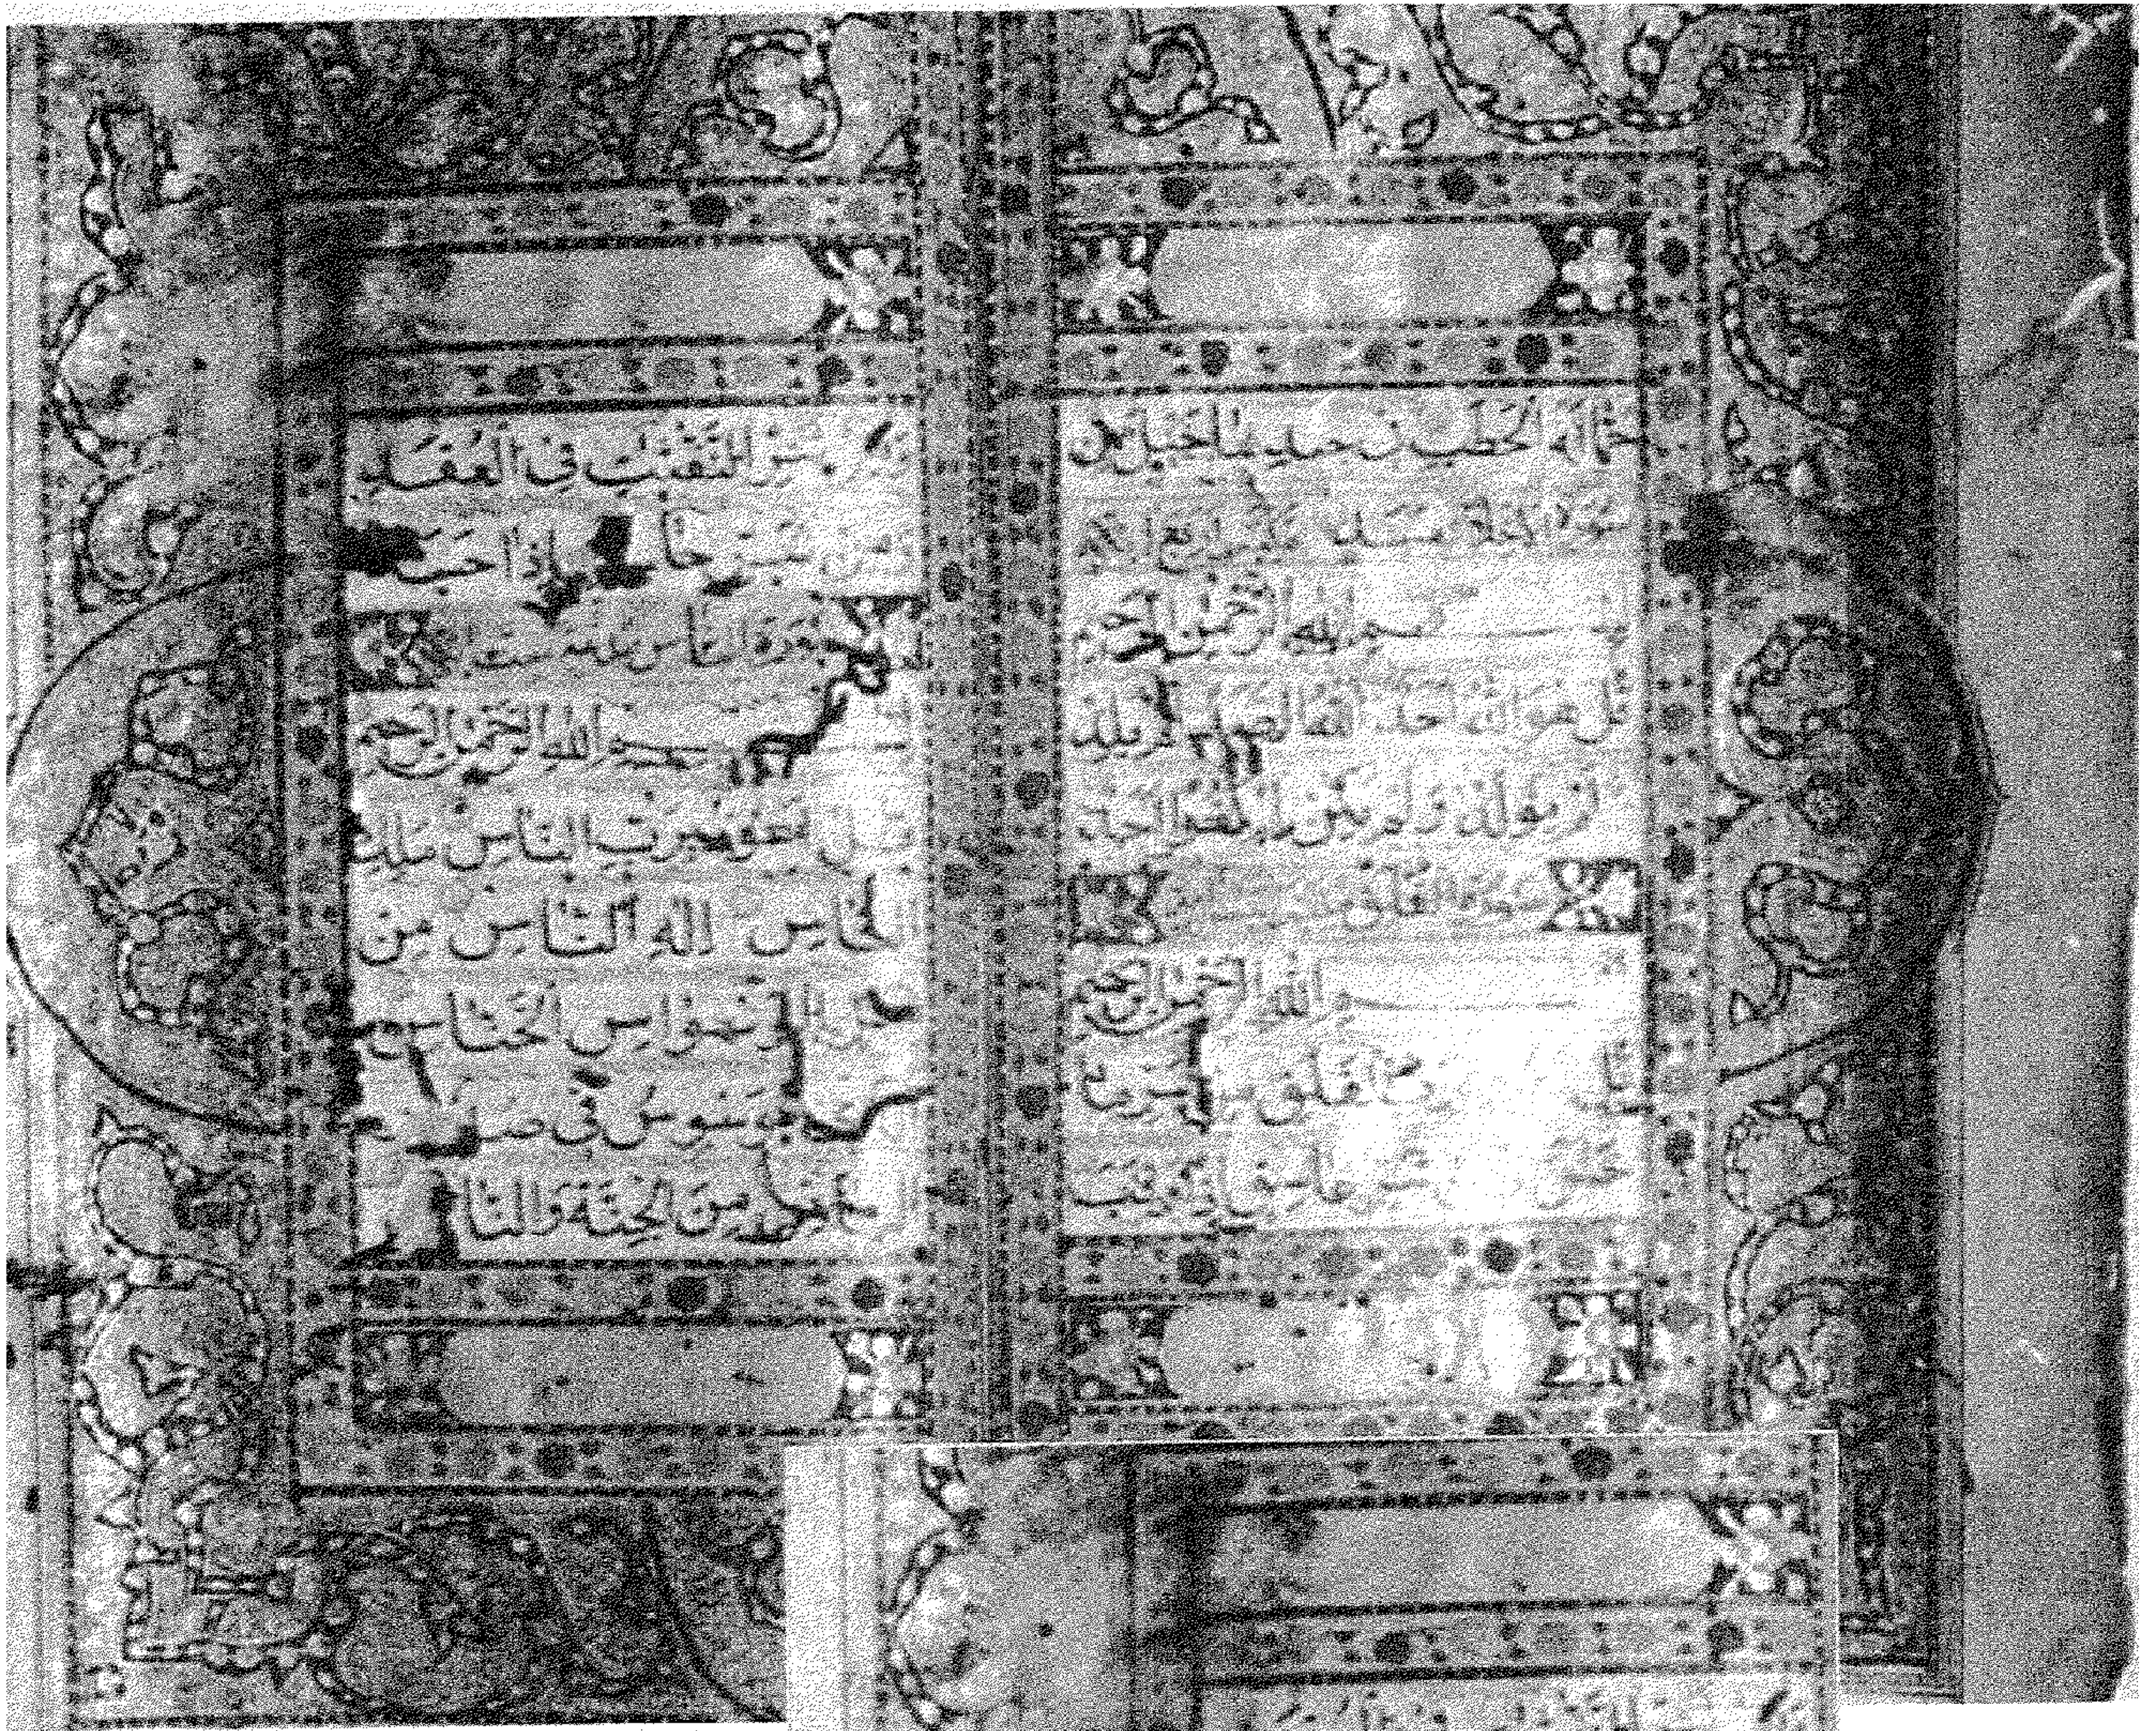 حمالة الحطب في جيدها حبل من
مسد اربع
بسم الله الرحمن الرحيم
قل هو الله احد الله الصمد لم يلد
ولم يولد ولم يكن له كفوا احد
سورة الفلق
الله الرحمن الرحيم
الفلق من شر ما
خلق شر غاسق اذا وقب
شر النفثت في العقد
شر حاسد اذا حسد
سورة الناس ست
بسم الله الرحمن الرحيم
قل اعوذ برب الناس ملك
الناس اله الناس من
شر الوسواس الخناس
يوسوس في
من الجنة والنا